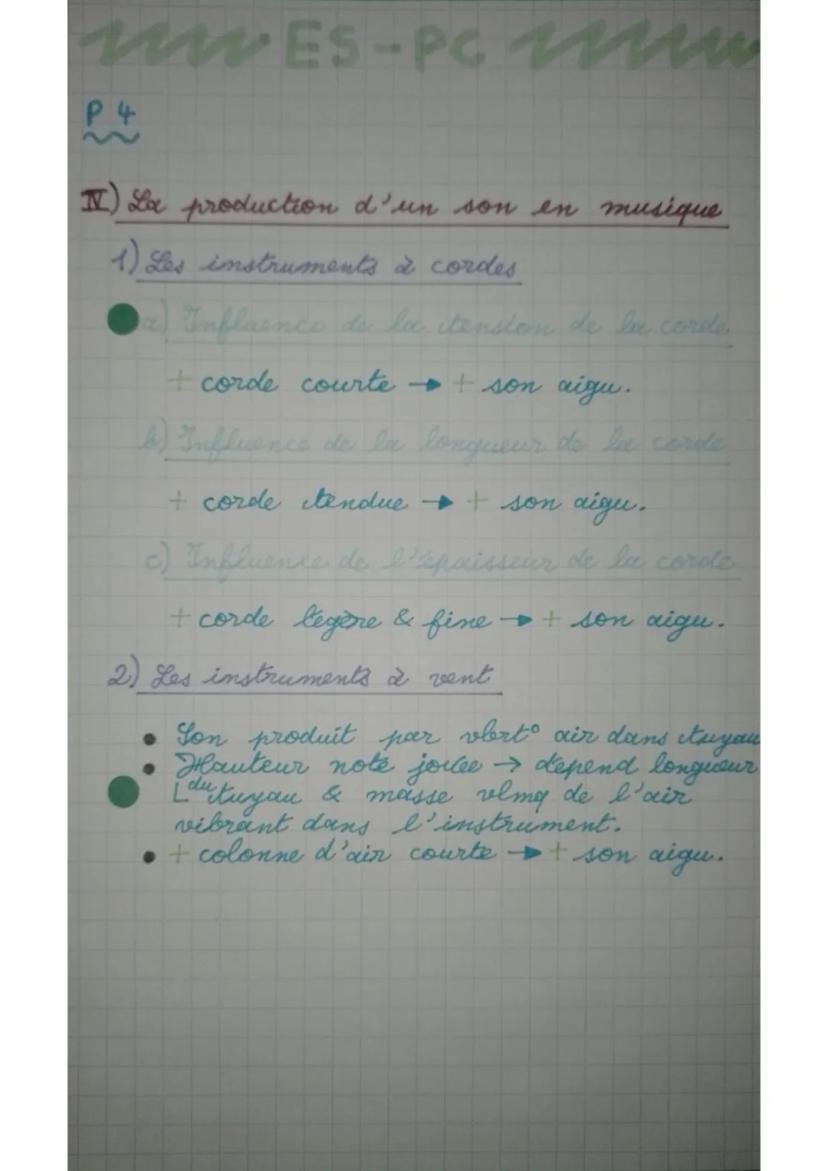 ES-PC
P 4
IV) La production d'un son en musique
1) Les instruments à cordes
a) Influence de la tension de la corde
+ corde courte → + son aigu.
b) Influence de la longueur de la corde
+ corde tendue → + son aigu.
c) Influence de l'épaisseur de la corde
+ corde légère & fine → + son aigu.
2) Les instruments à vent
• Son produit par vbrt° air dans tuyau
• Hauteur note jouée → dépend longueur
L du tuyau & masse vlmq de l'air
vibrant dans l'instrument.
• + colonne d'air courte → + son aigu.